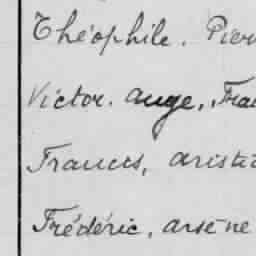 Théophile. Pier
Victor. auge, Fra
Francis, aristi
Frédéric, arsène